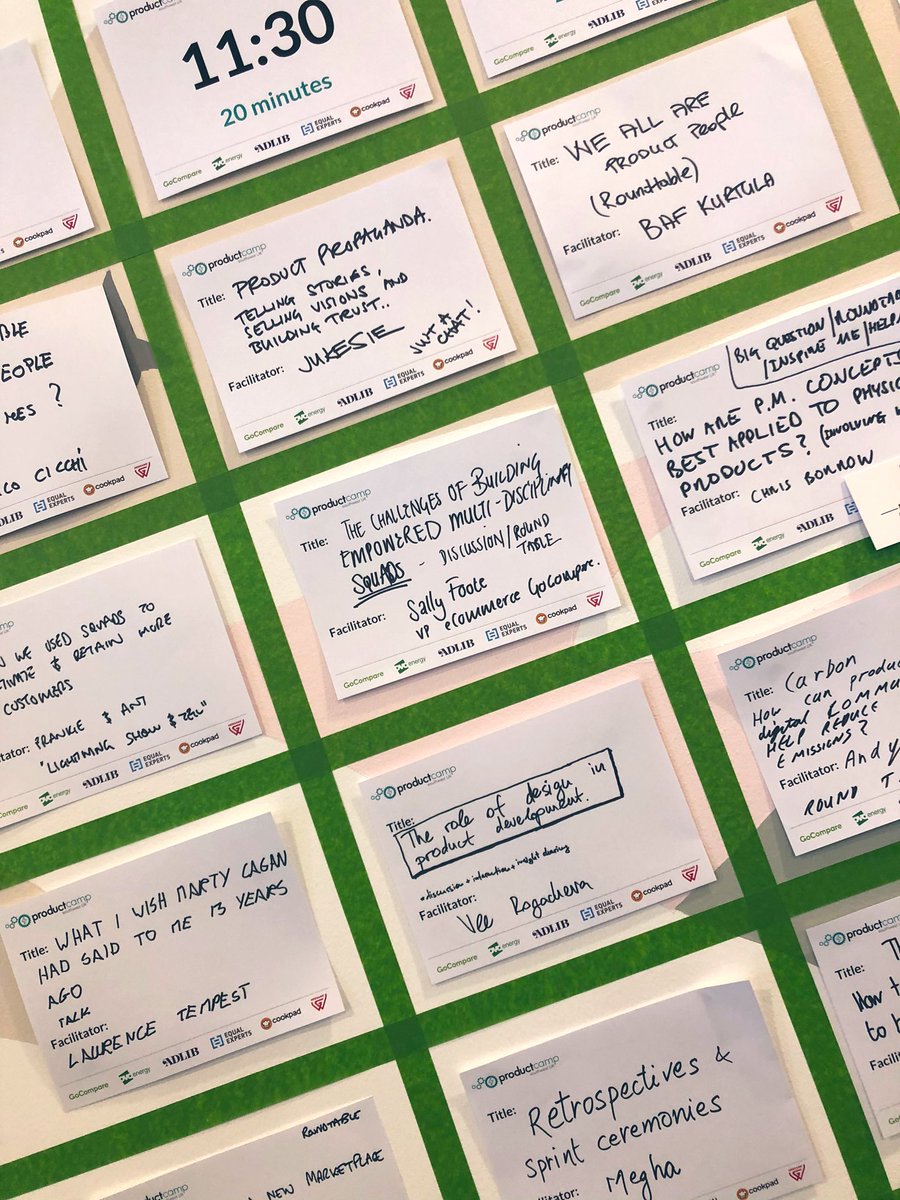 productcamp
11:30
20 minutes
GoCompare energy ADLIB EQUAL EXPERTS cookpad
GoCompare energy ADLIB EQUAL EXPERTS
cookpad
productcamp
Title: WE ALL ARE
PRODUCT PEOPLE
(Roundtable)
Facilitator: BAF KURTULA
GoCompare energy ADLIB EQUAL EXPERTS cookpad
productcamp
Title: PRODUCT PROPAGANDA.
TELLING STORIES,
SELLING VISIONS, AND
BUILDING TRUST..
Facilitator: JUKESIE
JUST A
CHAT!
GoCompare energy ADLIB EQUAL EXPERTS cookpad
EOPLE
?
CICCHI
ADLIB EQUAL EXPERTS cookpad
BIG QUESTION/ROUNDTA
/INSPIRE ME/HELP
productcamp
Title:
HOW ARE P.M. CONCEPT
BEST APPLIED TO PHYSIC
PRODUCTS? (INVOLVING
Facilitator: CHRIS BORROW
GoCompare energy ADLIB
productcamp
Title: THE CHALLENGES OF BUILDING
EMPOWERED MULTI-DISCIPLINARY
SQUADS - DISCUSSION/ROUND
TABLE
Facilitator: Sally Foote
VP eCommerce GoCompare.
GoCompare energy ADLIB EQUAL EXPERTS cookpad
WE USED SQUADS TO
& RETAIN MORE
CUSTOMERS
FRANKIE & ANT
"LIGHTNING SHOW & TELL"
energy ADLIB EQUAL EXPERTS cookpad
productcamp
Title: Carbon
How can produc
digital
HELP REDUCE
EMISSIONS?
Facilitator: Andy
ROUND T
GoCompare energy
productcamp
Title:
The role of design in
product development.
• discussion + interaction + insight sharing
Facilitator:
Vee Rogacheva
GoCompare energy ADLIB EQUAL EXPERTS cookpad
productcamp
Title: WHAT I WISH MARTY CAGAN
HAD SAID TO ME 13 YEARS
AGO
TALK
Facilitator:
LAURENCE TEMPEST
GoCompare energy ADLIB EQUAL EXPERTS cookpad
productcamp
Title:
How t
to
Facili
productcamp
Title: Retrospectives &
sprint ceremonies
Facilitator: Megha
EQUAL EXPERTS cookpad
ROUNDTABLE
NEW MARKETPLACE
productcamp